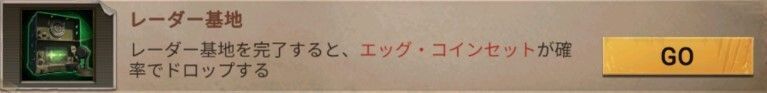 レーダー基地
レーダー基地を完了すると、エッグ・コインセットが確
率でドロップする
GO